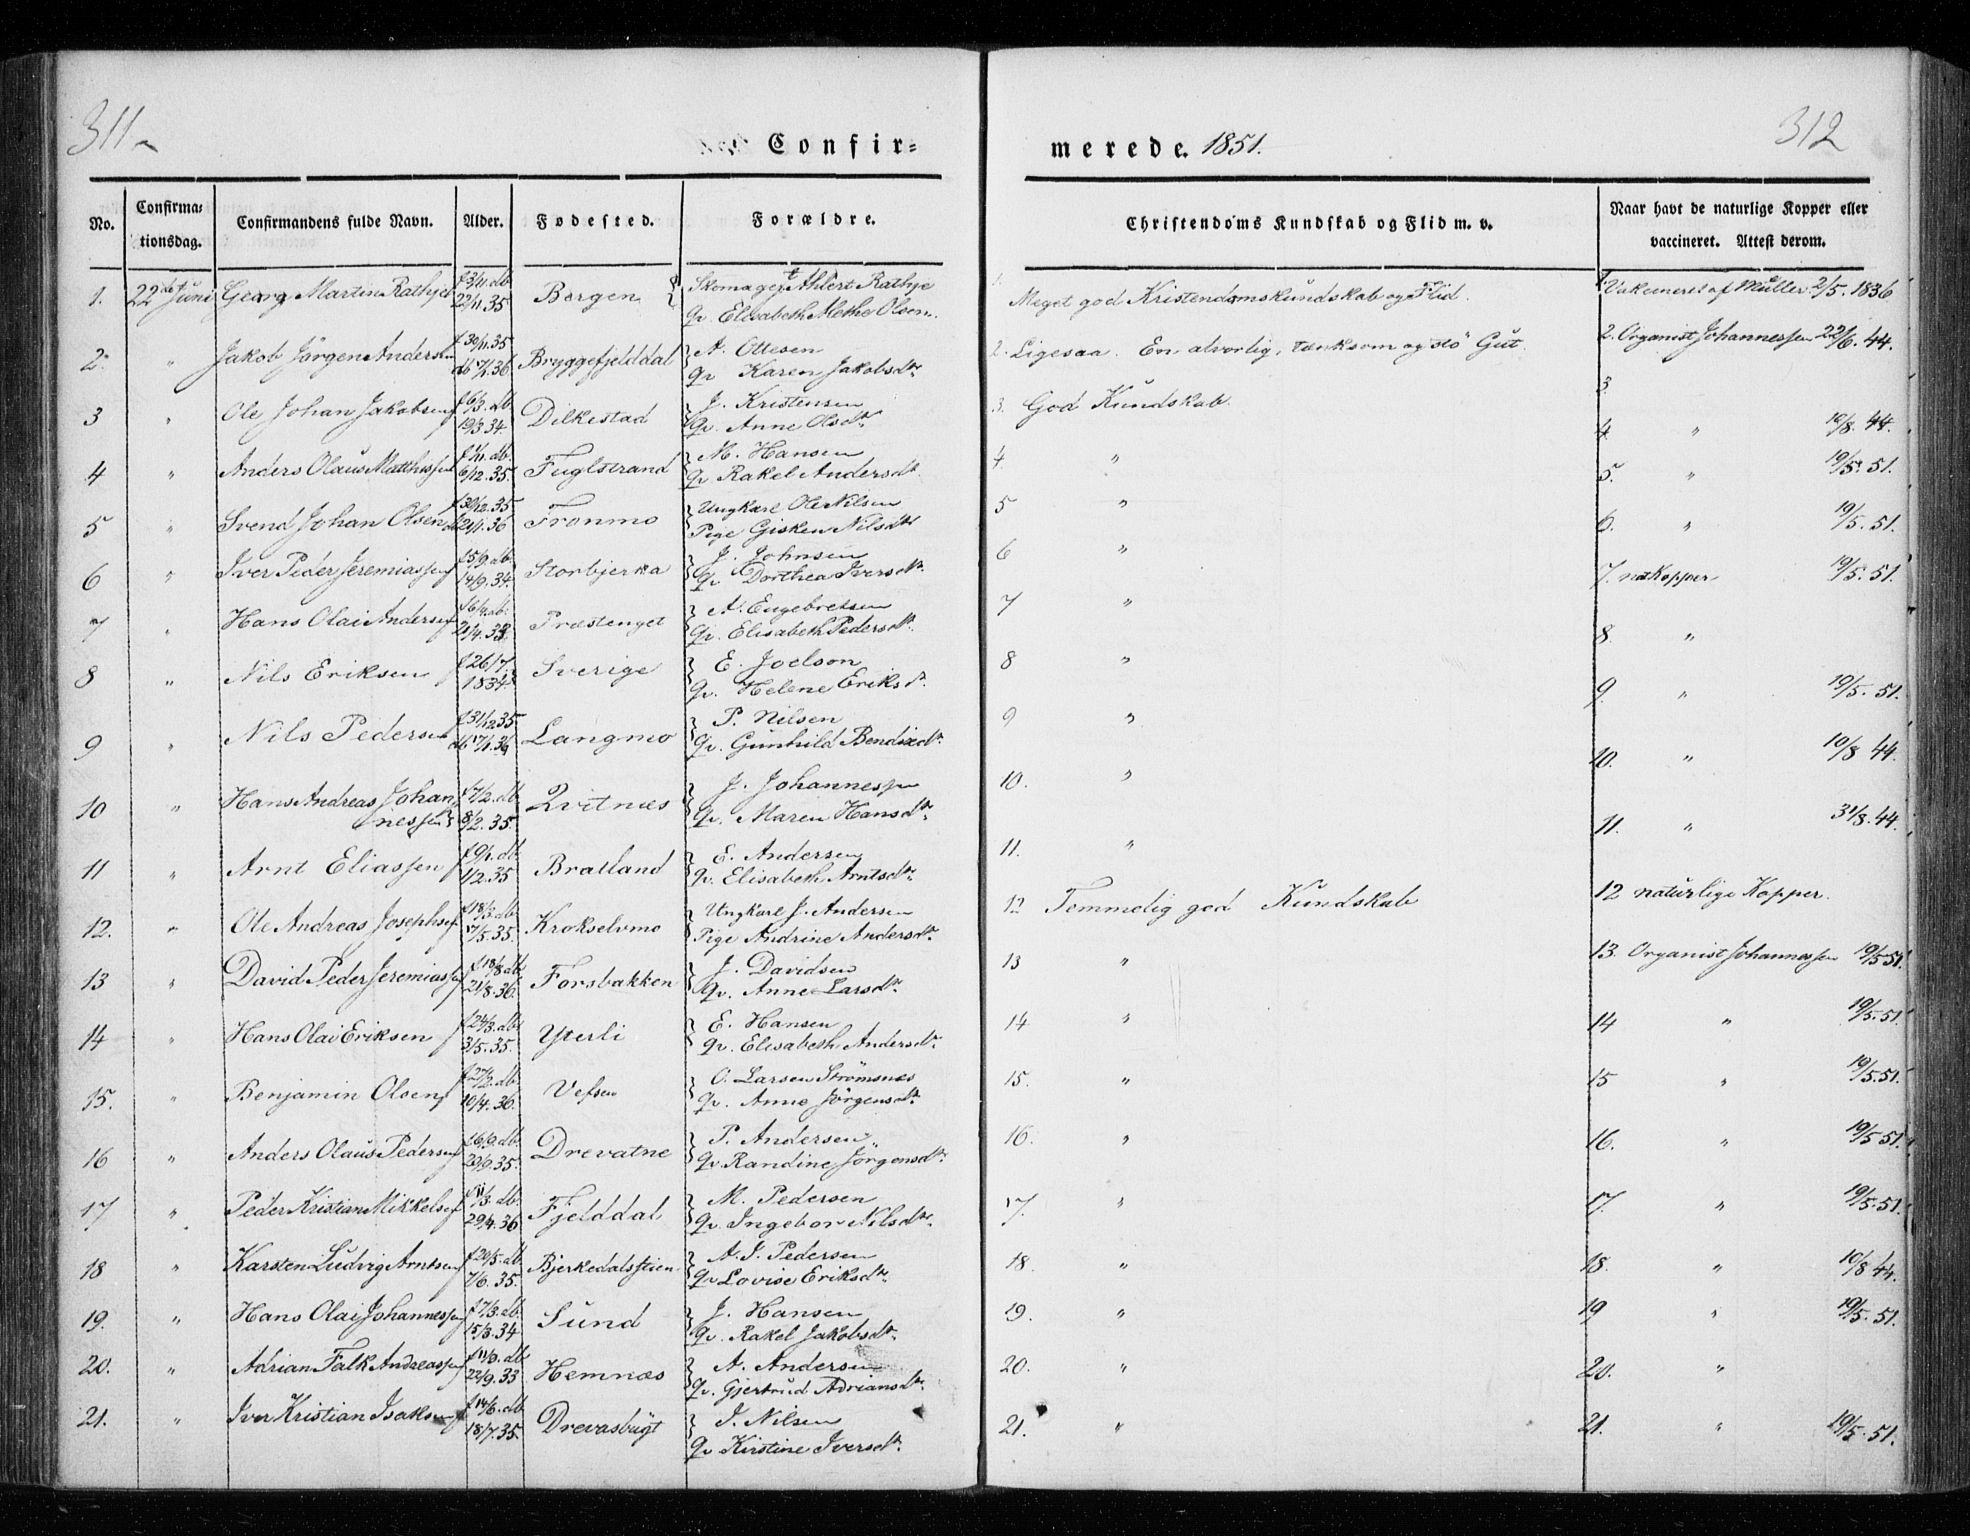 311
Confir-
No. Confirma-tionsdag. Confirmandens fulde Navn. Alder. Fødested. Forældre.
1. 22de Juni Georg Martin Rathje f 3/11. db 22/11 35 Bergen Skomager Ahlert Rathje
Qv. Elisabeth Methe Olsen.
2. " Jakob Jörgen Andersen f 30/11.35 db 17/1.36 Bryggefjelddal A. Ottesen
Qv Karen Jakobsdr
3 " Ole Johan Jakobsen f 6/3. db 19/3.34. Dilkestad J. Kristensen
Qv. Anne Olsdr
4 " Anders Olaus Matthissen db 6/12.35. Fuglstrand M. Hansen
Qv Rakel Andersdr
5 " Svend Johan Olsen f 30/12.35 21/1.36 Fronmo Ungkarl Ole Nilsen
Pige Gisken Nilsdr
6 " Iver Peder Jeremiassen f 5/9. db 14/9.34. Storbjerka J. Johnsen
Qv Dorthea Iversdr.
7 " Hans Olai Andersen db: 21/4.33. Præstenget A. Engebretsen
Qv. Elisabeth Pedersdr.
8 " Nils Eriksen f 26/7. 1834. Sverige E. Joelson
Qv. Helene Eriksdr.
9 " Nils Pedersen f 31/12.35 db 17/1.36 Langmo P. Nilsen
Qv. Gunhild Bendixdr.
10 " Hans Andreas Johannessen f 7/2. db 8/2.35. Qvitnæs J. Johannessen
Qv. Maren Hansdr.
11 " Arnt Eliassen f 9/1. db 1/2.35 Bratland E. Andersen
Qv. Elisabeth Arntsdr.
12. " Ole Andreas Josephsen f 18/3. db 17/5.35. Krokselvmo Ungkarl J. Andersen
Pige Andrine Andersdr.
13 " David Peder Jeremiassen f 18/8 db 21/8.36. Forsbakken J. Davidsen
Qv. Anne Larsdr.
14 " Hans Olai Eriksen f 24/3. db 3/5.35. Yterli E. Hansen
Qv. Elisabeth Andersdr.
15. " Benjamin Olsen f 27/2. db 10/4.36. Vefsen O. Larsen Strömsnes
Qv. Anne Jörgensdr.
16 " Anders Olaus Pedersen f 6/9. db. 20/9.35. Drevatne P. Andersen
Qv. Randine Jörgensdr.
17 " Peder Kristian Mikkelsen f 11/3. db. 29/4.36 Fjelddal M. Pedersen
Qv. Ingebor Nilsdr.
18 " Karsten Ludvig Arntsen f 20/5. db 7/6.35. Bjerkedalsstien A. J. Pedersen
Qv Lovise Eriksdr.
19. " Hans Olai Johannessen f 7/3. db. 15/3.34 Sund J. Hansen
Qv. Rakel Jakobsdr.
20. " Adrian Falk Andreassen f 11/9. db 22/9.33 Hemnæs A. Andersen
Qv. Gjertrud Adriansdr.
21. " Iver Kristian Isaksen f 14/6. db 18/7.35. Drevasbugt I. Nilsen
Qv Kirstine Iversdr.
312
merede. 1851.
Christendoms Kundskab og Flid m. v. Naar havt de naturlige Kopper eller vaccineret. Attest derom.
1. Meget god Kristendomskundskab og Flid. 1. Vakcineret af Müller 2/5. 1836
2. Ligesaa. En alvorlig, tænksom og stö Gut. 2. Organist Johannessen 22/6.44.
3. God Kundskab. 3
4. " 4. " 10/8.44.
5 " 5. " 19/5.51.
6 " 6. " 19/5.51.
7 " 7. natkopper 19/5.51.
8 " 8. "
9 " 9. " 19/5.51.
10. " 10. " 10/8 44.
11. " 11. " 31/8.44.
12 Temmelig god Kundskab 12 naturlige Kopper.
13 " 13. Organist Johannessen 19/5 51.
14 " 14 " 19/5.51.
15. " 15 " 19/5.51.
16. " 16. " 19/5 51.
17. " 17. " 19/5.51.
18. " 18. " 10/8 44.
19. " 19 " 19/5.51.
20. " 20. "
21. " 21. " 19/5.51.